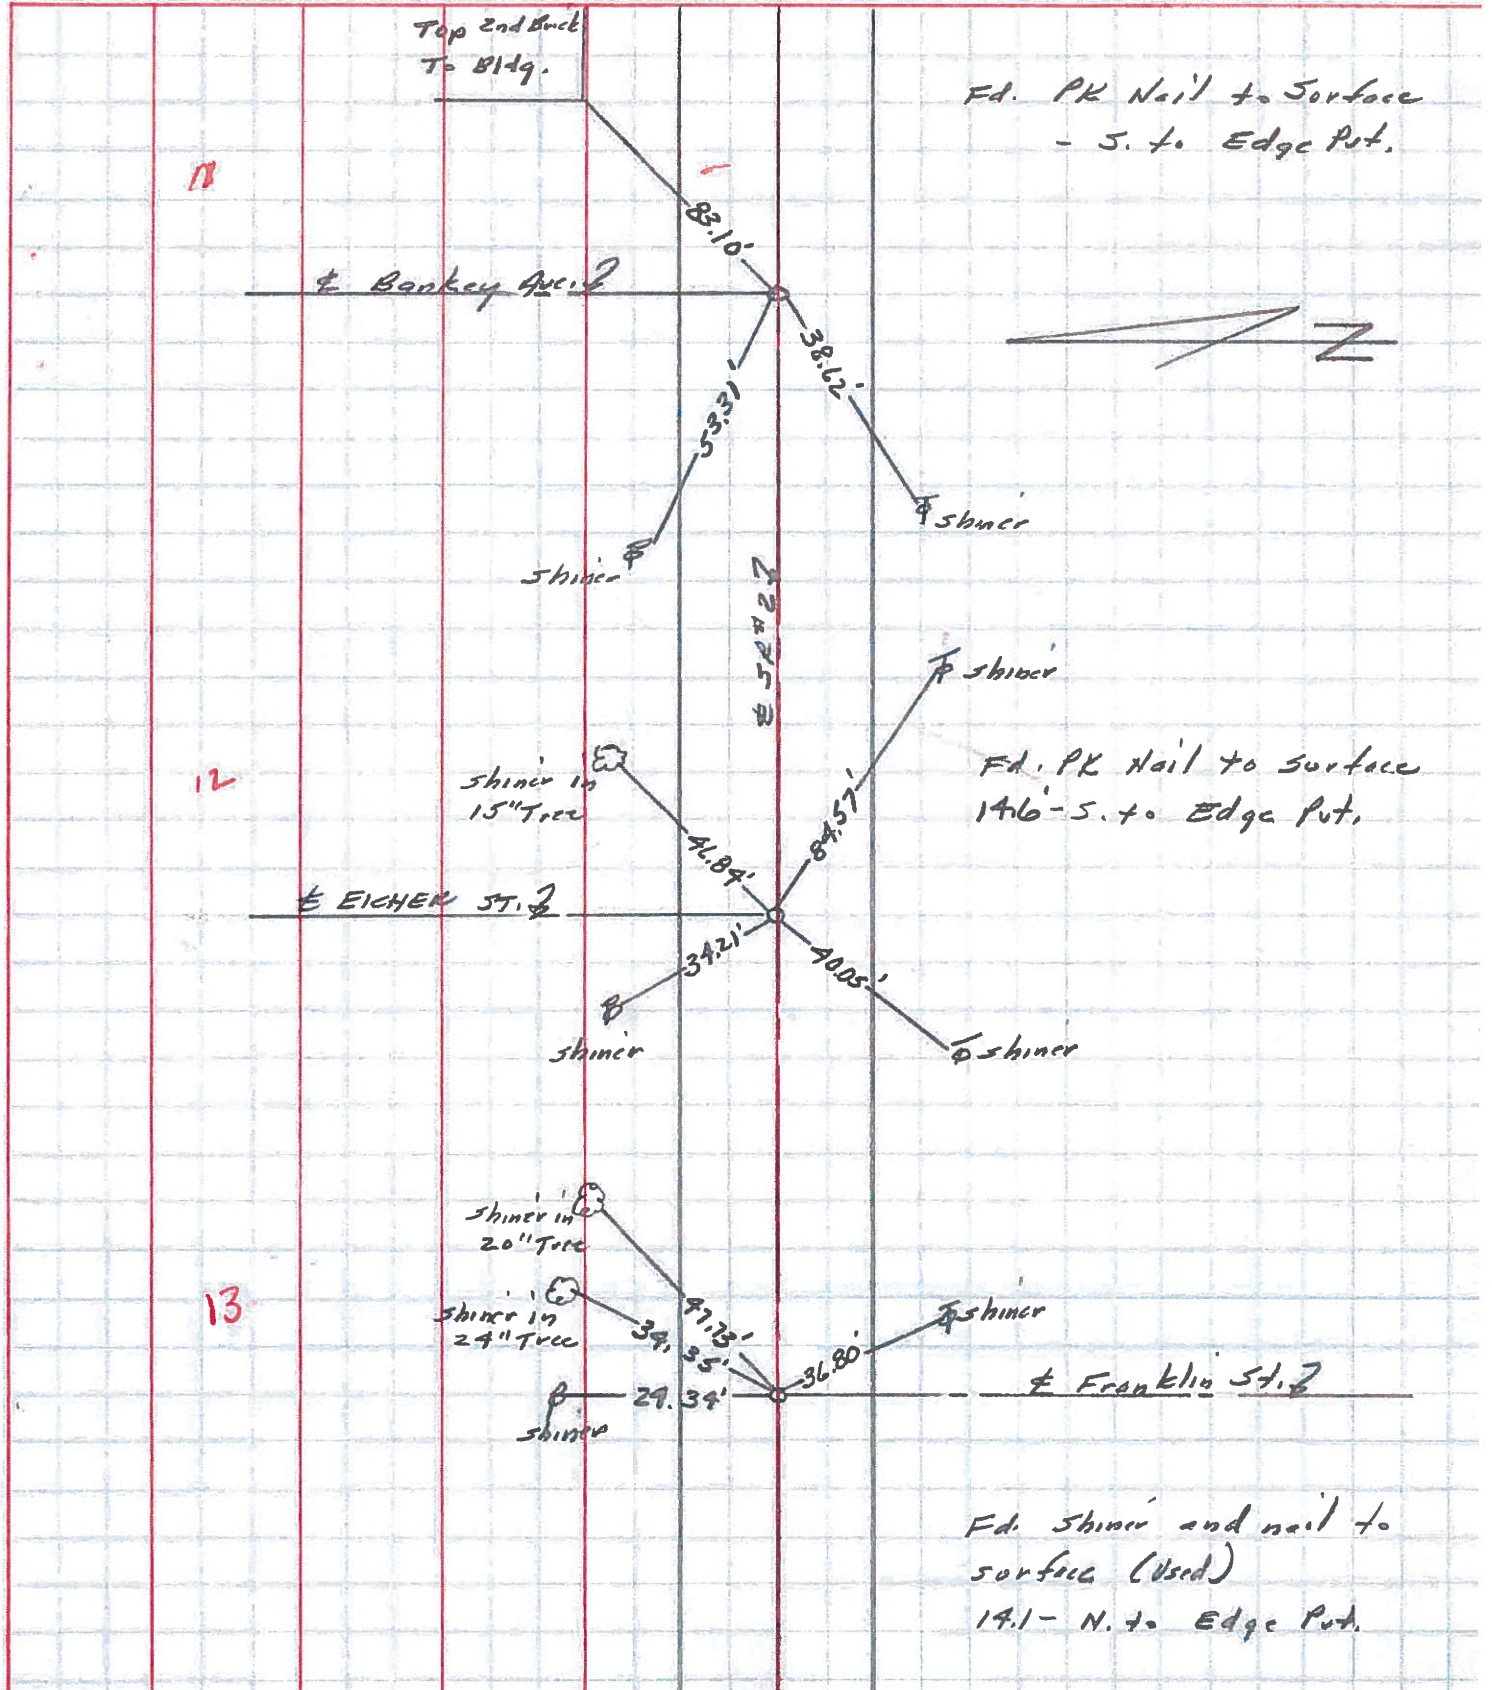 Top 2nd Brick
To Bldg.
Fd. PK Nail to Surface
- S. to Edge Pvt.
11
83.10'
℄ Bankey Ave.
38.62'
N
53.31'
shiner
shiner
℄ SR #2
shiner
12
shiner in
15" Tree
Fd. PK Nail to Surface
14.6'- S. to Edge Pvt.
84.57'
℄ EICHER ST.
34.21'
40.05'
shiner
shiner
shiner in
20" Tree
13
shiner in
24" Tree
47.73'
34.35'
36.80'
shiner
29.34'
℄ Franklin St.
shiner
Fd. Shiner and nail to
surface (Used)
14.1- N. to Edge Pvt.